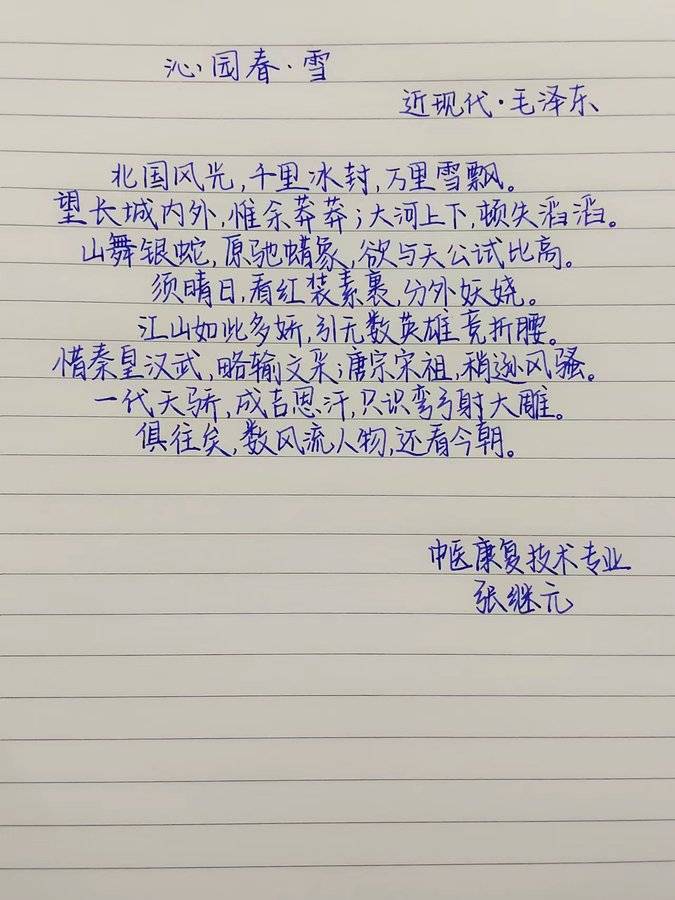 沁园春·雪
近现代·毛泽东
北国风光,千里冰封,万里雪飘。
望长城内外,惟余莽莽;大河上下,顿失滔滔。
山舞银蛇,原驰蜡象,欲与天公试比高。
须晴日,看红装素裹,分外妖娆。
江山如此多娇,引无数英雄竞折腰。
惜秦皇汉武,略输文采;唐宗宋祖,稍逊风骚。
一代天骄,成吉思汗,只识弯弓射大雕。
俱往矣,数风流人物,还看今朝。
中医康复技术专业
张继元